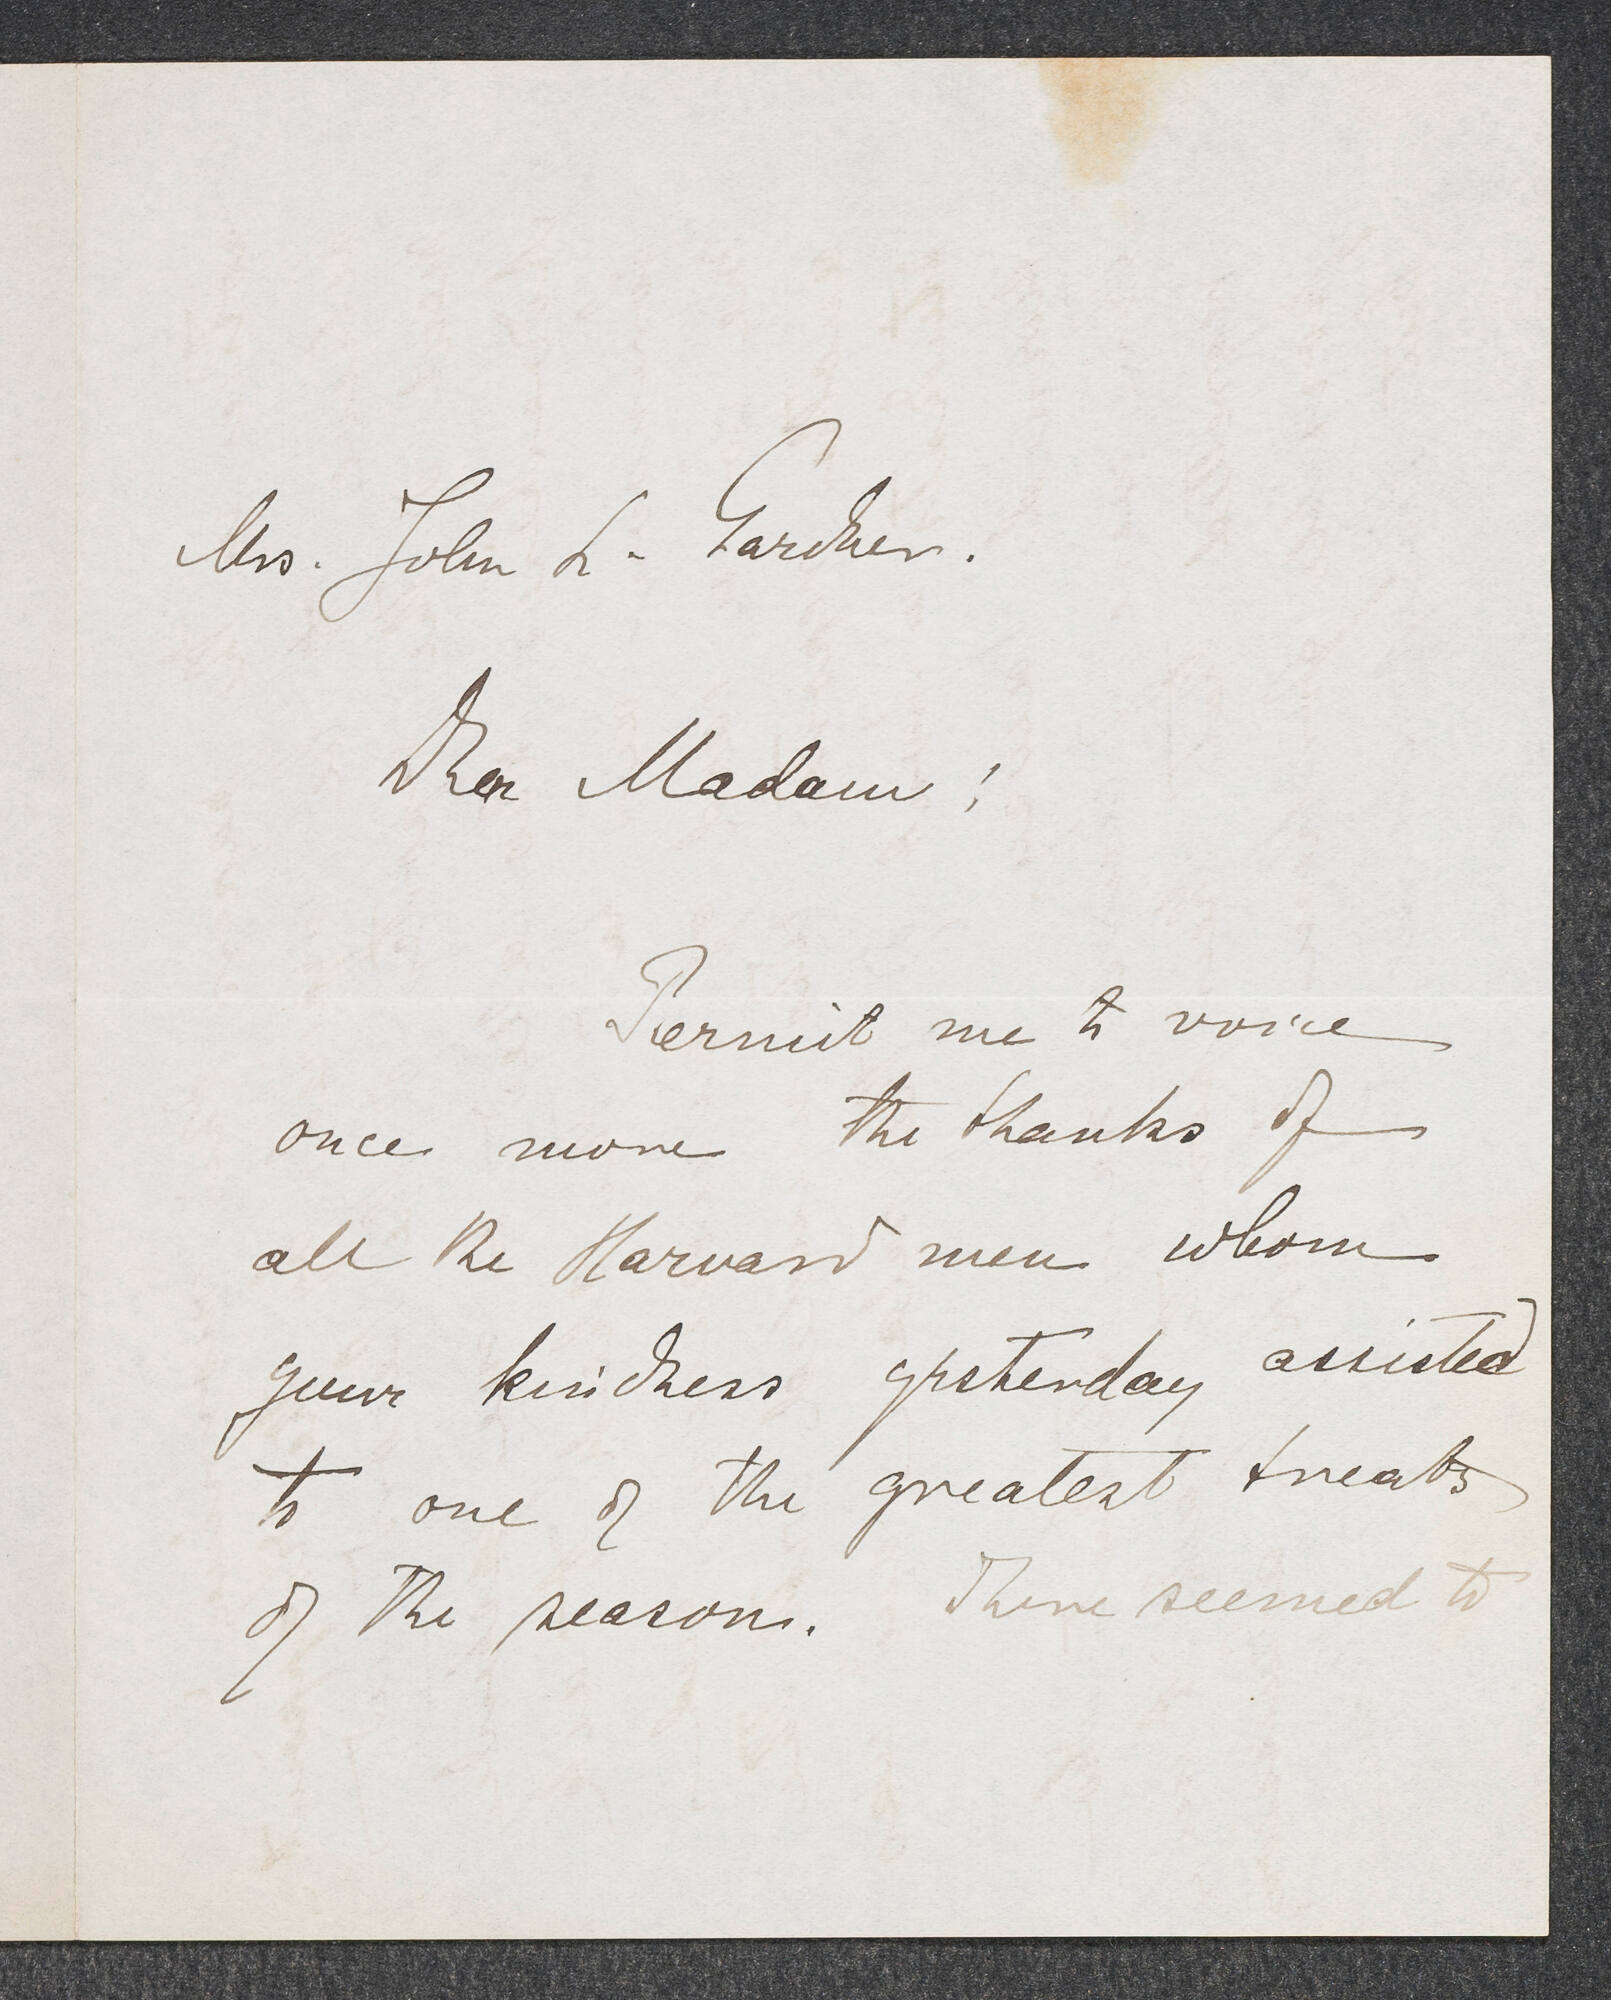 Mrs. John L. Gardner.
Dear Madam!
Permit me to voice
once more the thanks of
all the Harvard men whom
your kindness yesterday assisted
to one of the greatest treats
of the season. There seemed to